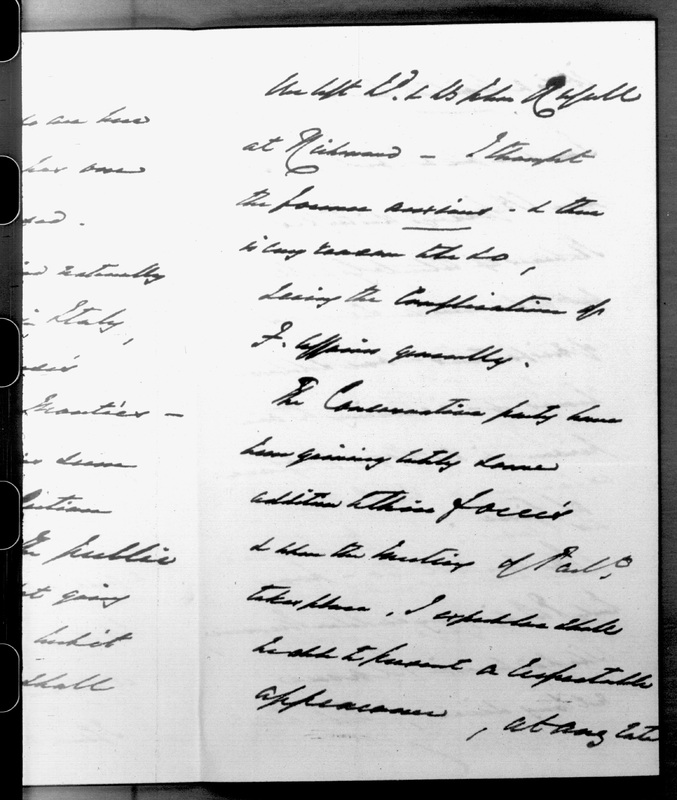 are here
has one
naturally
in Italy,
Treaties –
some
the public
not going
shall
We left Ld. & Ly John Russell
at Richmond – I thought
the former anxious – & there
is every reason to be so,
seeing the Complication of
F. Affairs generally.
The Conservative party have
been gaining lately some
addition to their forces
& when the Meeting of Parlt.
takes place, I expect we shall
be able to present a respectable
appearance, at any rate